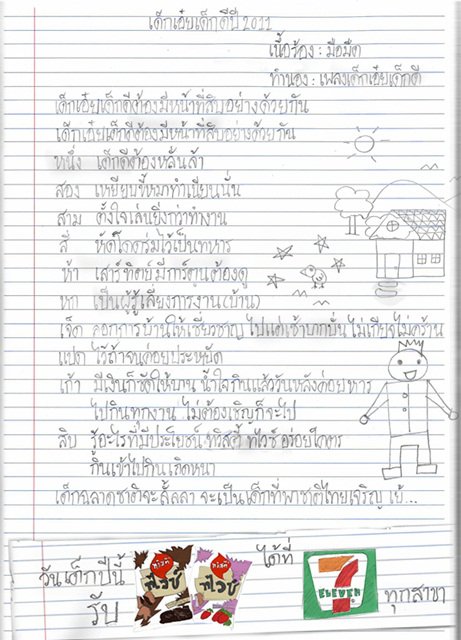 เด็กเอ๋ยเด็กดีปี 2011
เนื้อร้อง : มือมืด
ทำนอง : เพลงเด็กเอ๋ยเด็กดี
เด็กเอ๋ยเด็กดีต้องมีหน้าที่สิบอย่างด้วยกัน
เด็กเอ๋ยเด็กดีต้องมีหน้าที่สิบอย่างด้วยกัน
หนึ่ง เด็กดีต้องหลั่นล้า
สอง เหยียบขี้หมาทำเนียนนั่น
สาม ตั้งใจเล่นยิ่งกว่าทำงาน
สี่ หัดโดดร่มไว้เป็นทหาร
ห้า เสาร์ทิตย์มีการ์ตูนต้องดู
หก เป็นผู้รู้เลี่ยงการงาน(บ้าน)
เจ็ด ลอกการบ้านให้เชี่ยวชาญ ไปแต่เช้าบากบั่น ไม่เกียจไม่คร้าน
แปด ไว้ถ้าจนค่อยประหยัด
เก้า มีเงินก็ซัดให้บาน น้ำใจกินแล้ววันหลังค่อยหาร
ไปกินทุกงาน ไม่ต้องเชิญก็จะไป
สิบ รู้อะไรที่มีประโยชน์ ทวิสตี้ ทไวซ์ อร่อยโคตร
กินเข้าไปกินเถิดหนา
เด็กฉลาดชาติจะลั้ลลา จะเป็นเด็กที่พาชาติไทยเจริญ เย้...
วันเด็กปีนี้
รับ
ทไวซ์
ทไวซ์
ได้ที่
7
ELEVEN
ทุกสาขา